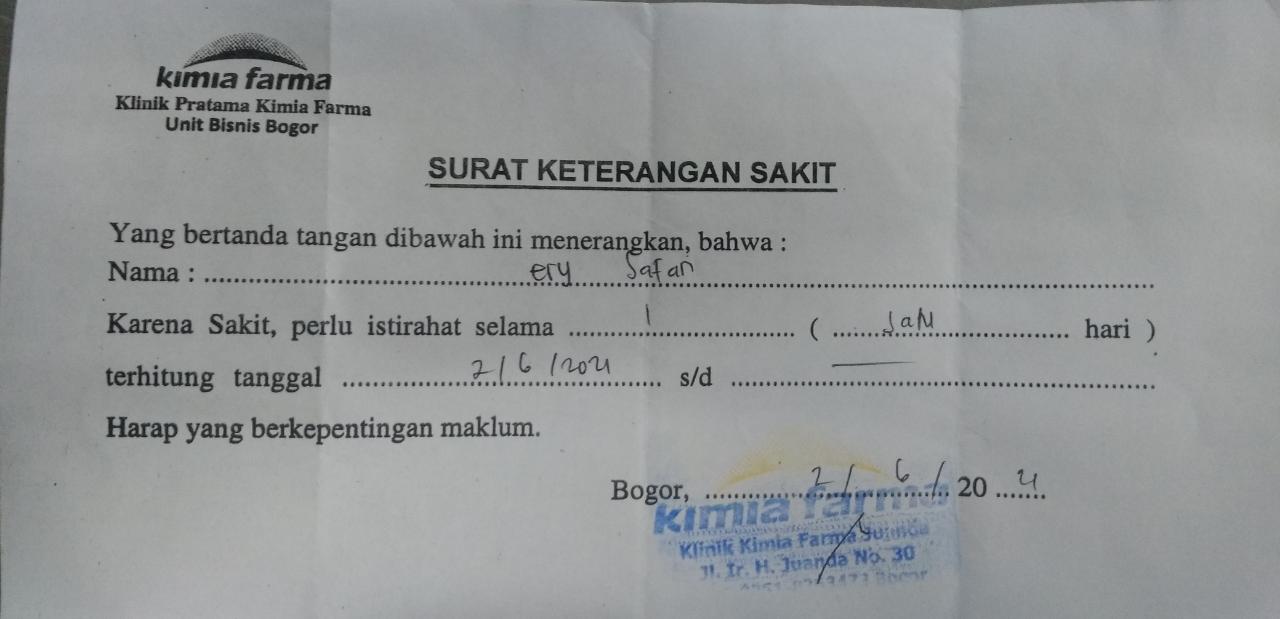 kimia farma
Klinik Pratama Kimia Farma
Unit Bisnis Bogor
SURAT KETERANGAN SAKIT
Yang bertanda tangan dibawah ini menerangkan, bahwa :
Nama : ery Safari
Karena Sakit, perlu istirahat selama 1 ( satu hari )
terhitung tanggal 2/6/2021 s/d —
Harap yang berkepentingan maklum.
Bogor, 2/6/ 20 21
kimia farma
Klinik Kimia Farma Juanda
Jl. Ir. H. Juanda No. 30
Bogor